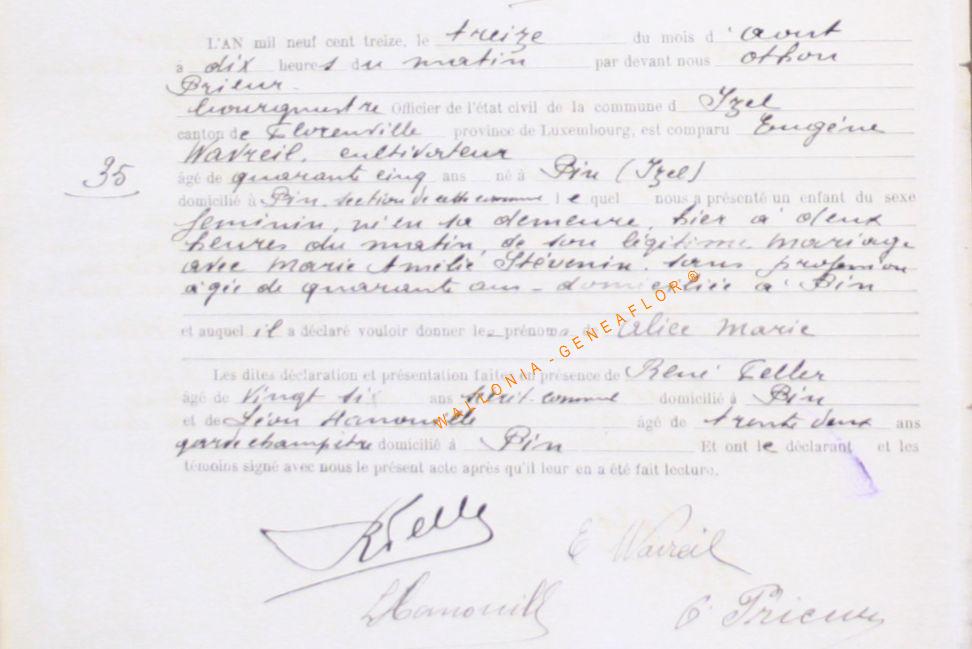 L'AN mil neuf cent treize, le treize du mois d'aout
à dix heures du matin par devant nous Othon
Prieur
bourgmestre Officier de l'état civil de la commune d Izel
canton de Florenville province de Luxembourg, est comparu Eugène
Wavreil, cultivateur
35
âgé de quarante cinq ans né à Pin (Izel)
domicilié à Pin, section de cette commune lequel nous a présenté un enfant du sexe
feminin, né en sa demeure, hier à deux
heures du matin, de son légitime mariage
avec Marie Amélie Stévenin, sans profession
agée de quarante ans - domiciliée à Pin
et auquel il a déclaré vouloir donner les prénoms de Alice Marie
Les dites déclaration et présentation faites en présence de René Feller
âgé de Vingt six ans secrét. commul domicilié à Pin
et de Léon Hanouille âgé de trente deux ans
garde champêtre domicilié à Pin Et ont le déclarant et les
témoins signé avec nous le présent acte après qu'il leur en a été fait lecture.
WALLONIA - GENEAFLOR®
RFeller
E Wavreil
LHanouille
O Prieur